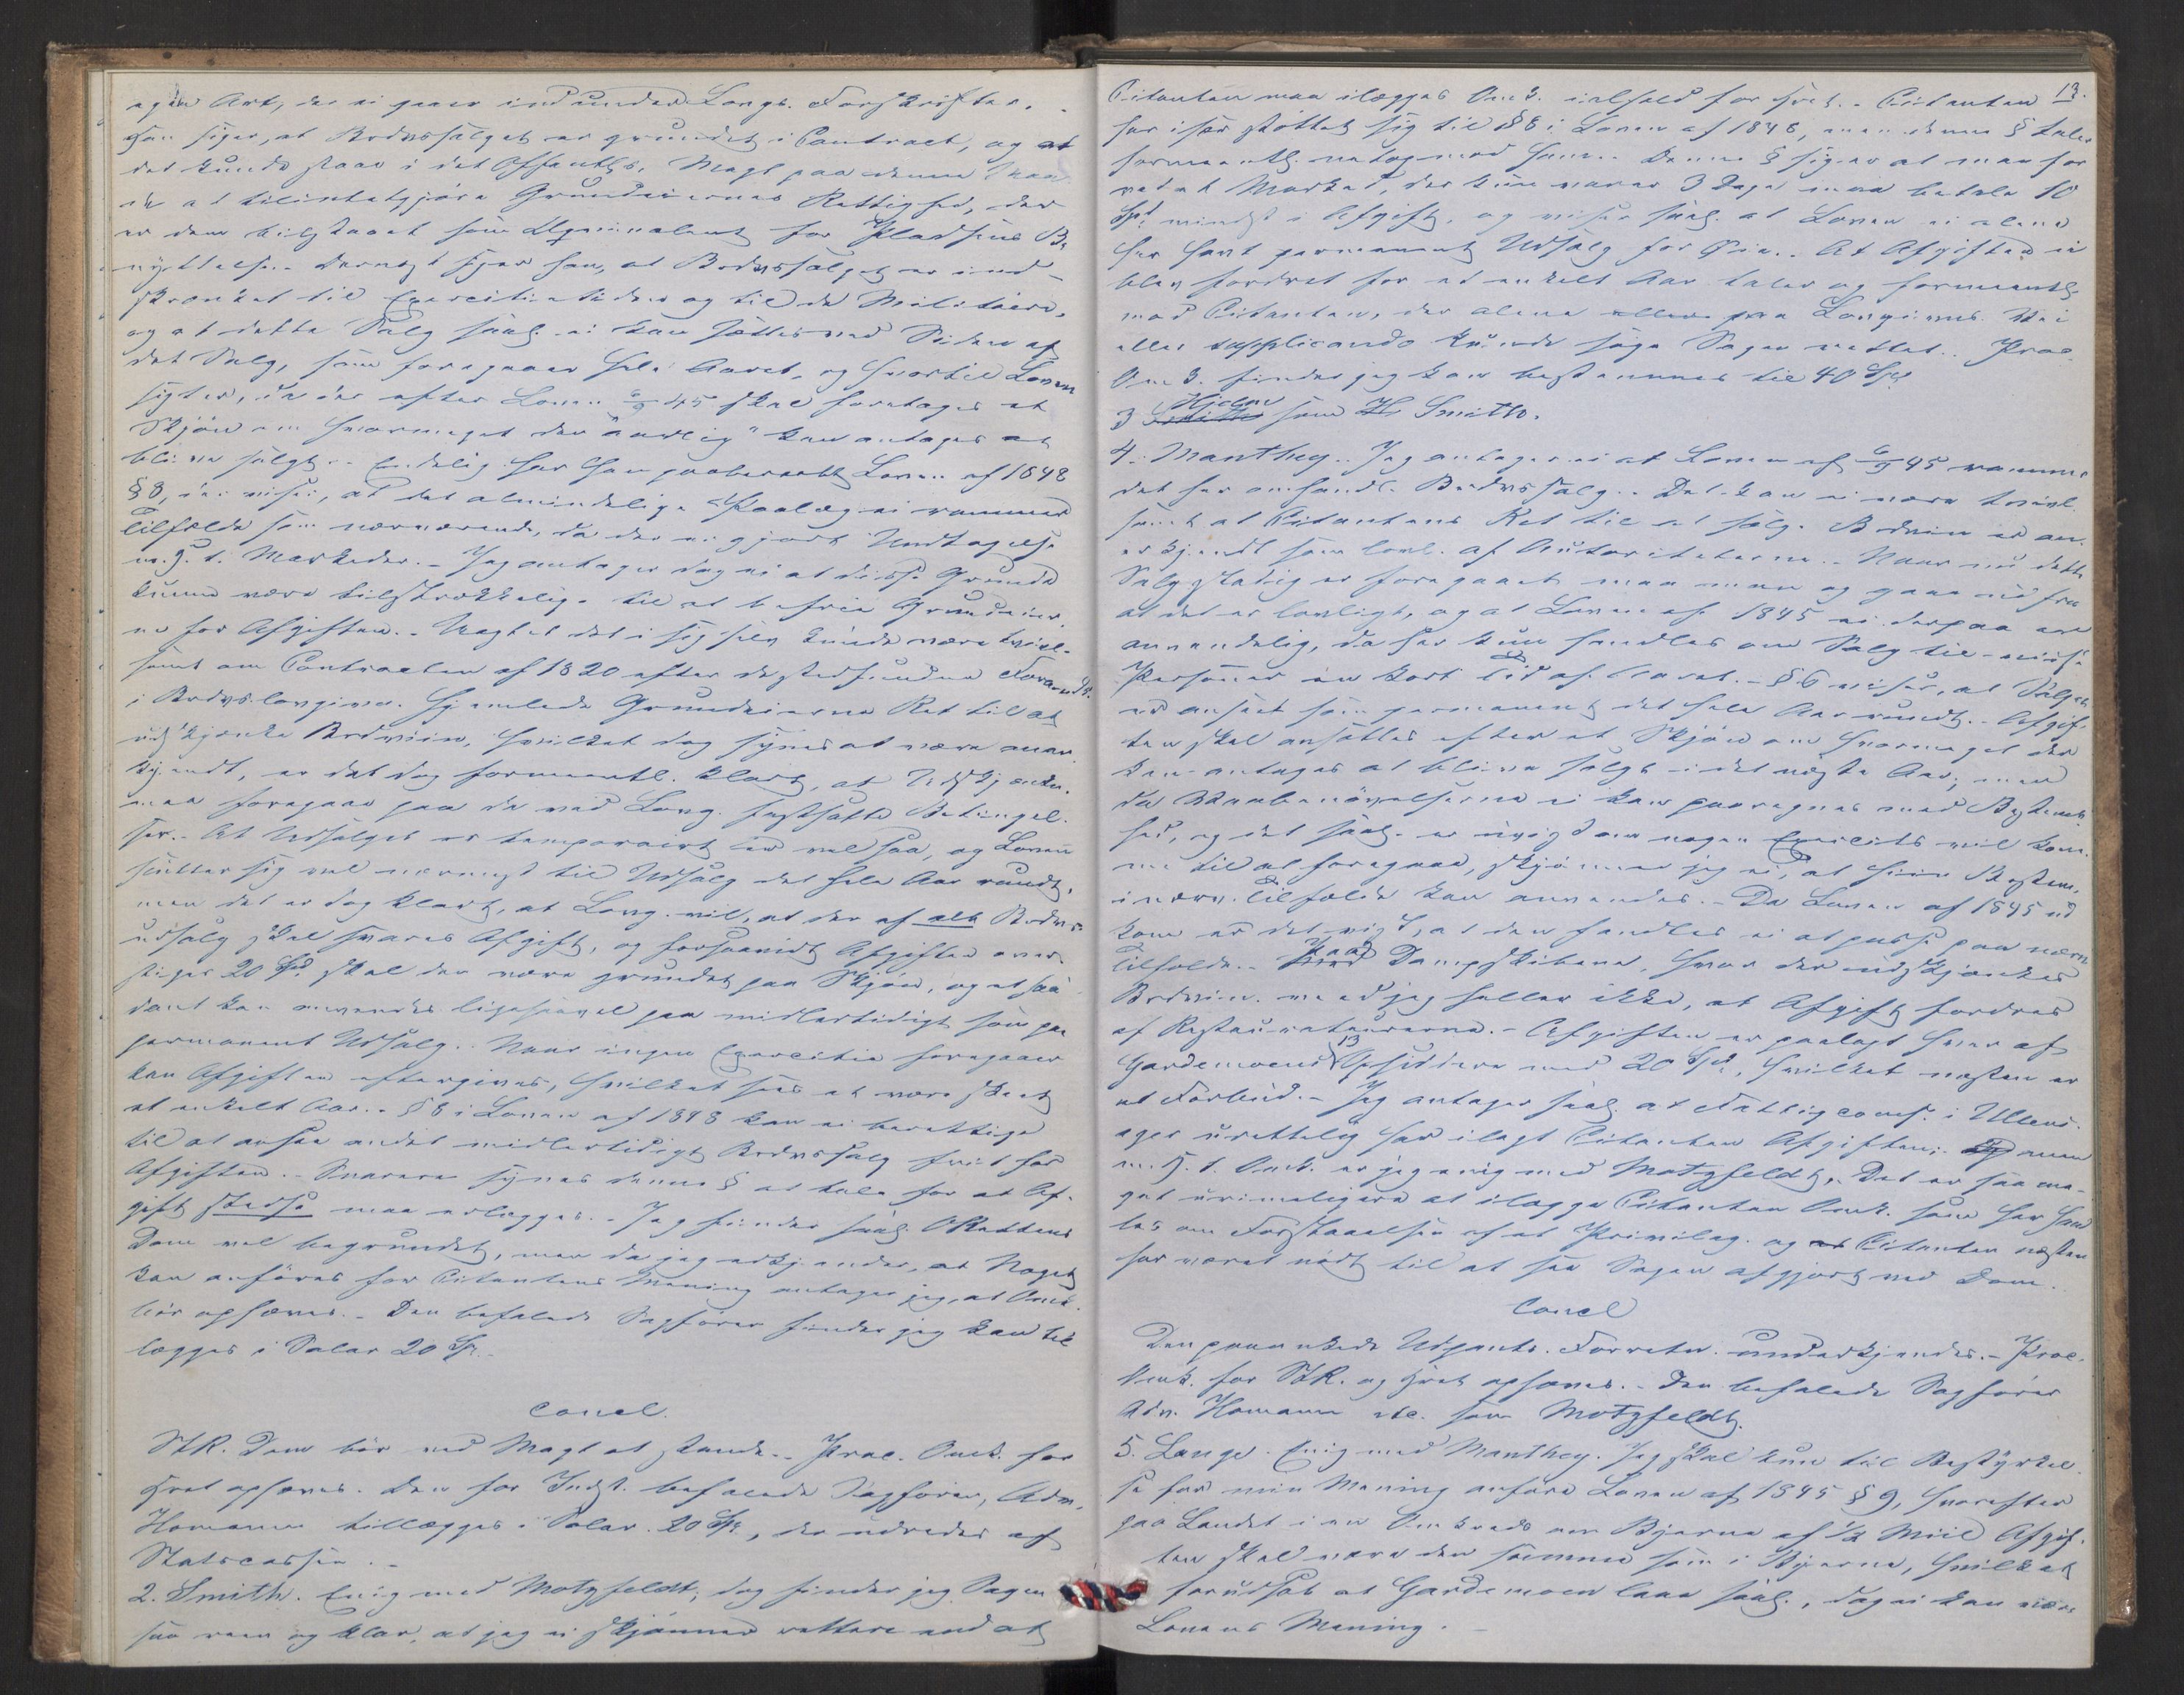 egen Art, der ei gaaer ind under Lovgs. Forskrifter.
Han siger, at Brdvssalget er grundet i Contract, og at
det kunde staae i det Offentlgs. Magt paa denne Maa-
de at tilintetgjöre Grundeiernes Rettighed, der
er dem tilstaaet som Æqvivalent for Pladsens Be-
nyttelse. Dernæst siger han, at Brdvssalget er ind-
skrænket til Exercitietiden og til de Militaire,
og at dette Salg saal. ei kan sættes ved Siden af
det Salg, som foregaaer hele Aaret, og hvortil Loven
sigter, da der efter Loven 6/9 45 skal foretages et
Skjön om hvormeget der "aarlig" kan antages at
blive solgt. Endelig har han paaberaabt Loven af 1848
§ 8, der viser, at det almindelige Paalæg ei rammer
Tilfælde som nærværende, da der er gjort Undtagelse
m. H. t. Markeder. - Jeg antager dog ei at disse Grunde
kunne være tilstrækkelige til at befrie Grundeier-
ne for Afgiften. - Uagtet det i sig selv kunde være tvivl-
somt om Contracten af 1820 efter de stedfundne Forandr.
i Brdvslovgivn. hjemlede Grundeierne Ret til at
udskjænke Brdviin, hvilket dog synes at være aner-
kjendt, er det dog formeentl. klart, at Udskjænkn.
maa foregaae paa de ved Lovg. fastsatte Betingel-
ser. - At Udsalget er temporairt er vel saa, og Loven
sigter sig vel nærmest til Udsalg det hele Aar rundt,
men det er dog klart, at Lovg. vil, at der af alt Brdvs-
udsalg skal svares Afgift, og forsaavidt Afgiften over-
stiger 20 Spd skal den være grundet paa Skjön, og et saa-
dant kan anvendes ligesaavel paa midlertidigt som paa
permanent Udsalg. Naar ingen Exercitie foregaaer
kan Afgiften eftergives, hvilket sees at være skeet
et enkelt Aar. - § 8 i Loven af 1848 kan ei berettige
til at ansee andet midlertidigt Brdvssalg frit for
Afgiften. - Snarere synes denne § at tale for at Af-
gift stedse maa erlægges. - Jeg finder saal. ORettens
Dom vel begrundet, men da jeg erkjender, at Noget
kan anföres for Citantens Mening antager jeg, at Omk.
bör ophæves. - Den befalede Sagförer finder jeg kan til-
lægges i Salær 20 Sp.
Concl.
StR. Dom bör ved Magt at stande. - Proc. Omk. for
Hret ophæves. Den for Indst. befalede Sagförer, Adv.
Homann tillægges i Salær 20 Sp., der udredes af
Statscassen. -
2. Smith. Enig med Motzfeldt, dog finder jeg Sagen
saa reen og klar, at jeg ei skjönner rettere end at
13.
Citanten maa ilægges Omk. ialfald for Hret. - Citanten
har især stöttet sig til § 8 i Loven af 1848, men denne § taler
formeentl. netop mod ham. Denne § siger at man for
ved et Marked, der kun varer 3 Dage maa betale 10
Spd mindst i Afgift, og viser saal. at Loven ei alene
har havt permanent Udsalg for Öie. At Afgiften ei
blev fordret for et enkelt Aar taler og formeentl.
mod Citanten, der alene paa Lovgivns. Vei
eller supplicando kunde söge Sagen rettet. Proc.
Omk. finder jeg kan bestemmes til 40 Spd
3 Hjelm som Smith.
4. Manthey. Jeg antager ei at Loven af 6/9 45 rammer
det her omhandl. Brdvssalg. Det kan ei være tvivl-
somt at Citantens Ret til at sælge Brdviin er an-
erkjendt som lovl. af Autoriteterne. Naar nu dette
Salg stadig er foregaaet maa man og gaae ud fra
at det er lovligt, og at Loven af 1845 ei derpaa er
anvendelig, da her kun handles om Salg til visse
Personer en kort Tid af Aaret. - § 6 viser, at Salget
er anseet som permanent det hele Aar rundt. Afgif-
ten skal ansættes efter et Skjön om hvormeget der
kan antages at blive solgt i det næste Aar, men
da Vaabenövelserne ei kan paaregnes med Bestemt-
hed, og det saal. er uvist om nogen Exercits vil kom-
me til at foregaae, skjönner jeg ei, at hiin Bestem.
i nærv. Tilfælde kan anvendes. - Da Loven af 1845 ud-
kom er det vist, at den fandtes ei at passe paa nærv.
Tilfælde. - Paa Dampskibene, hvor der udskjænkes
Brdviin veed jeg heller ikke, at Afgift fordres
af Restaurateurerne. - Afgiften er paalagt hver af
Gardemoens 13 Opsiddere med 20 Spd, hvilket næsten er
et Forbud. - Jeg antager saal. at Fattigcomm. i Ullens-
ager urettelig har ilagt Citanten Afgiften; men
m. H. t. Omk. er jeg enig med Motzfeldt. Det er saa me-
get urimeligere at ilægge Citanten Omk. som her hand-
les om Forstaaelsen af et Privileg. og Citanten næsten
har været nödt til at faae Sagen afgjort ved Dom.
Concl
Den paaankede Udpants. Forretn. underkjendes. - Proc.
Omk. for StR. og Hret ophæves. - Den befalede Sagförer
Adv. Homann etc. som Motzfeldt.
5. Lange. Enig med Manthey. Jeg skal kun til Bestyrkel-
se for min Mening anföre Loven af 1845 § 9, hvorefter
paa Landet i en Omkreds om Byerne af 1/2 Miil Afgif-
ten skal være den samme som i Byerne, hvilket
forudsat at Gardemoen laae saal., dog ei kan være
Lovens Mening. -